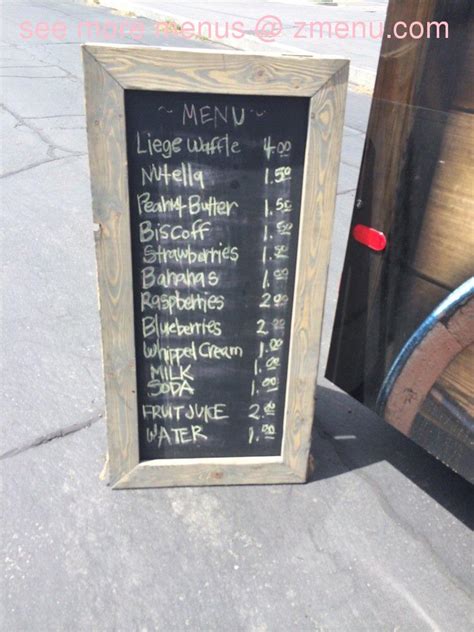 see more menus @ zmenu.com
~ MENU ~
Liege Waffle 4.00
Nutella 1.50
Peanut Butter 1.50
Biscoff 1.50
Strawberries 1.00
Bananas 1.00
Raspberries 2.00
Blueberries 2.00
Whipped Cream 1.00
MILK 1.00
SODA 1.00
FRUIT JUICE 2.00
WATER 1.00